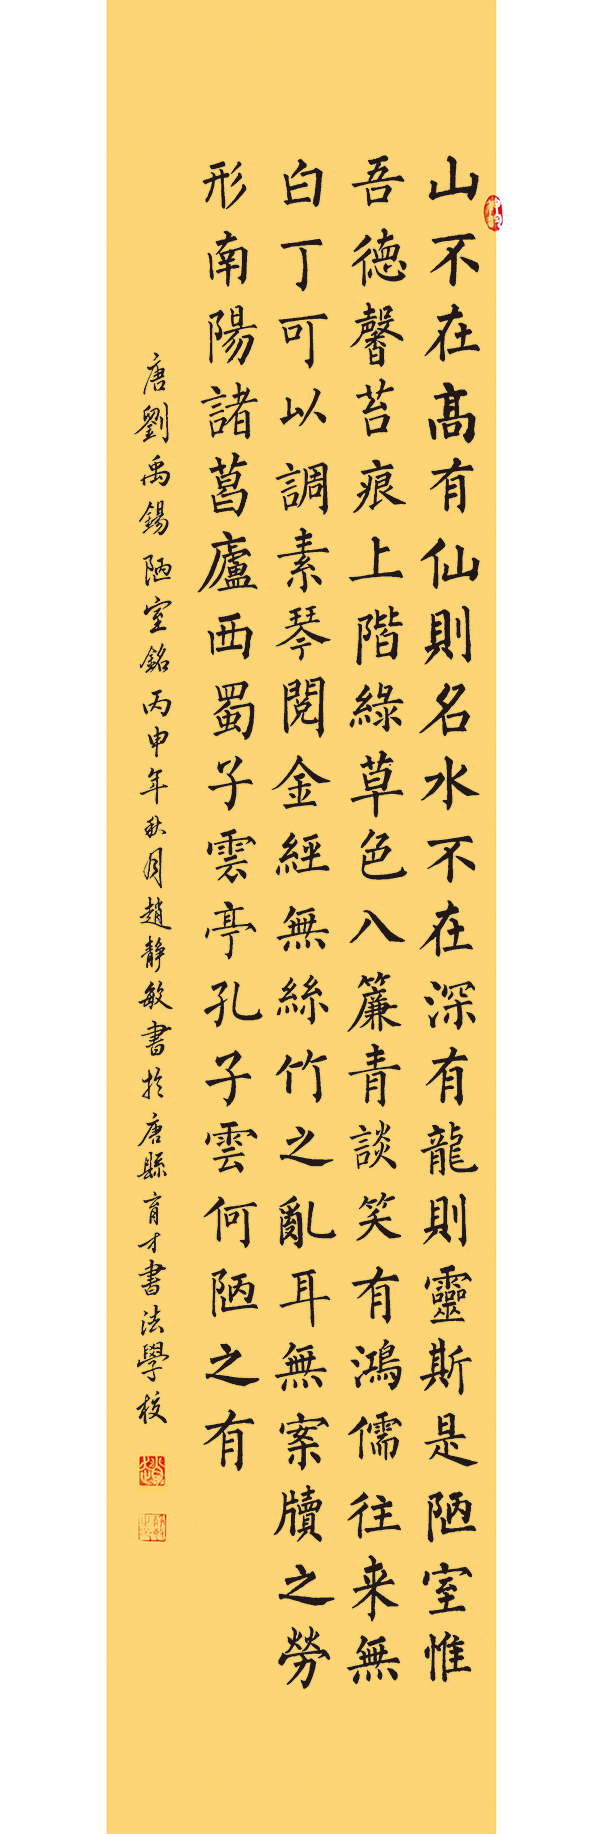 山不在髙有仙則名水不在深有龍則靈斯是陋室惟
吾徳馨苔痕上階綠草色入簾青談笑有鴻儒往来無
白丁可以調素琴閱金經無絲竹之亂耳無案牘之勞
形南陽諸葛廬西蜀子雲亭孔子雲何陋之有
唐劉禹錫陋室銘丙申年秋月趙静敏書於唐縣育才書法學校